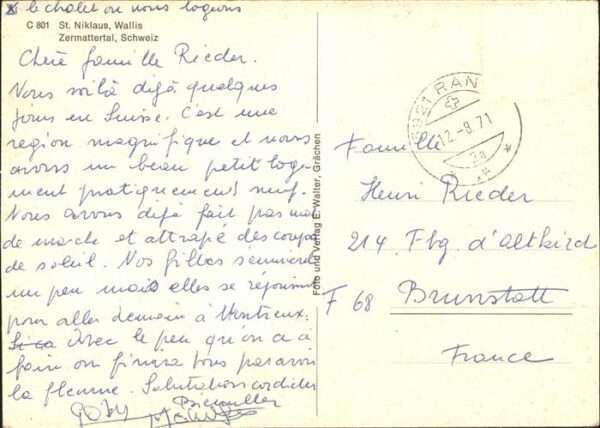 le chalet où nous logeons
C 801 St. Niklaus, Wallis
Zermattertal, Schweiz
Chère famille Rieder.
Nous voilà déjà quelques
jours en Suisse. C'est une
région magnifique et nous
avons un beau petit loge-
ment pratiquement neuf.
Nous avons déjà fait pas mal
de marche et attrapé des coups
de soleil. Nos filles s'ennuient
un peu mais elles se réjouissent
pour aller demain à Montreux.
Avec le peu qu'on a à
faire on finira tous par avoir
la flemme. Salutations cordiales
Goby
Foto und Verlag E. Walter, Grächen
RAN
12-8.71
Famille
Henri Rieder
214 Fbg. d'Altkirch
F 68 Brunstatt
France